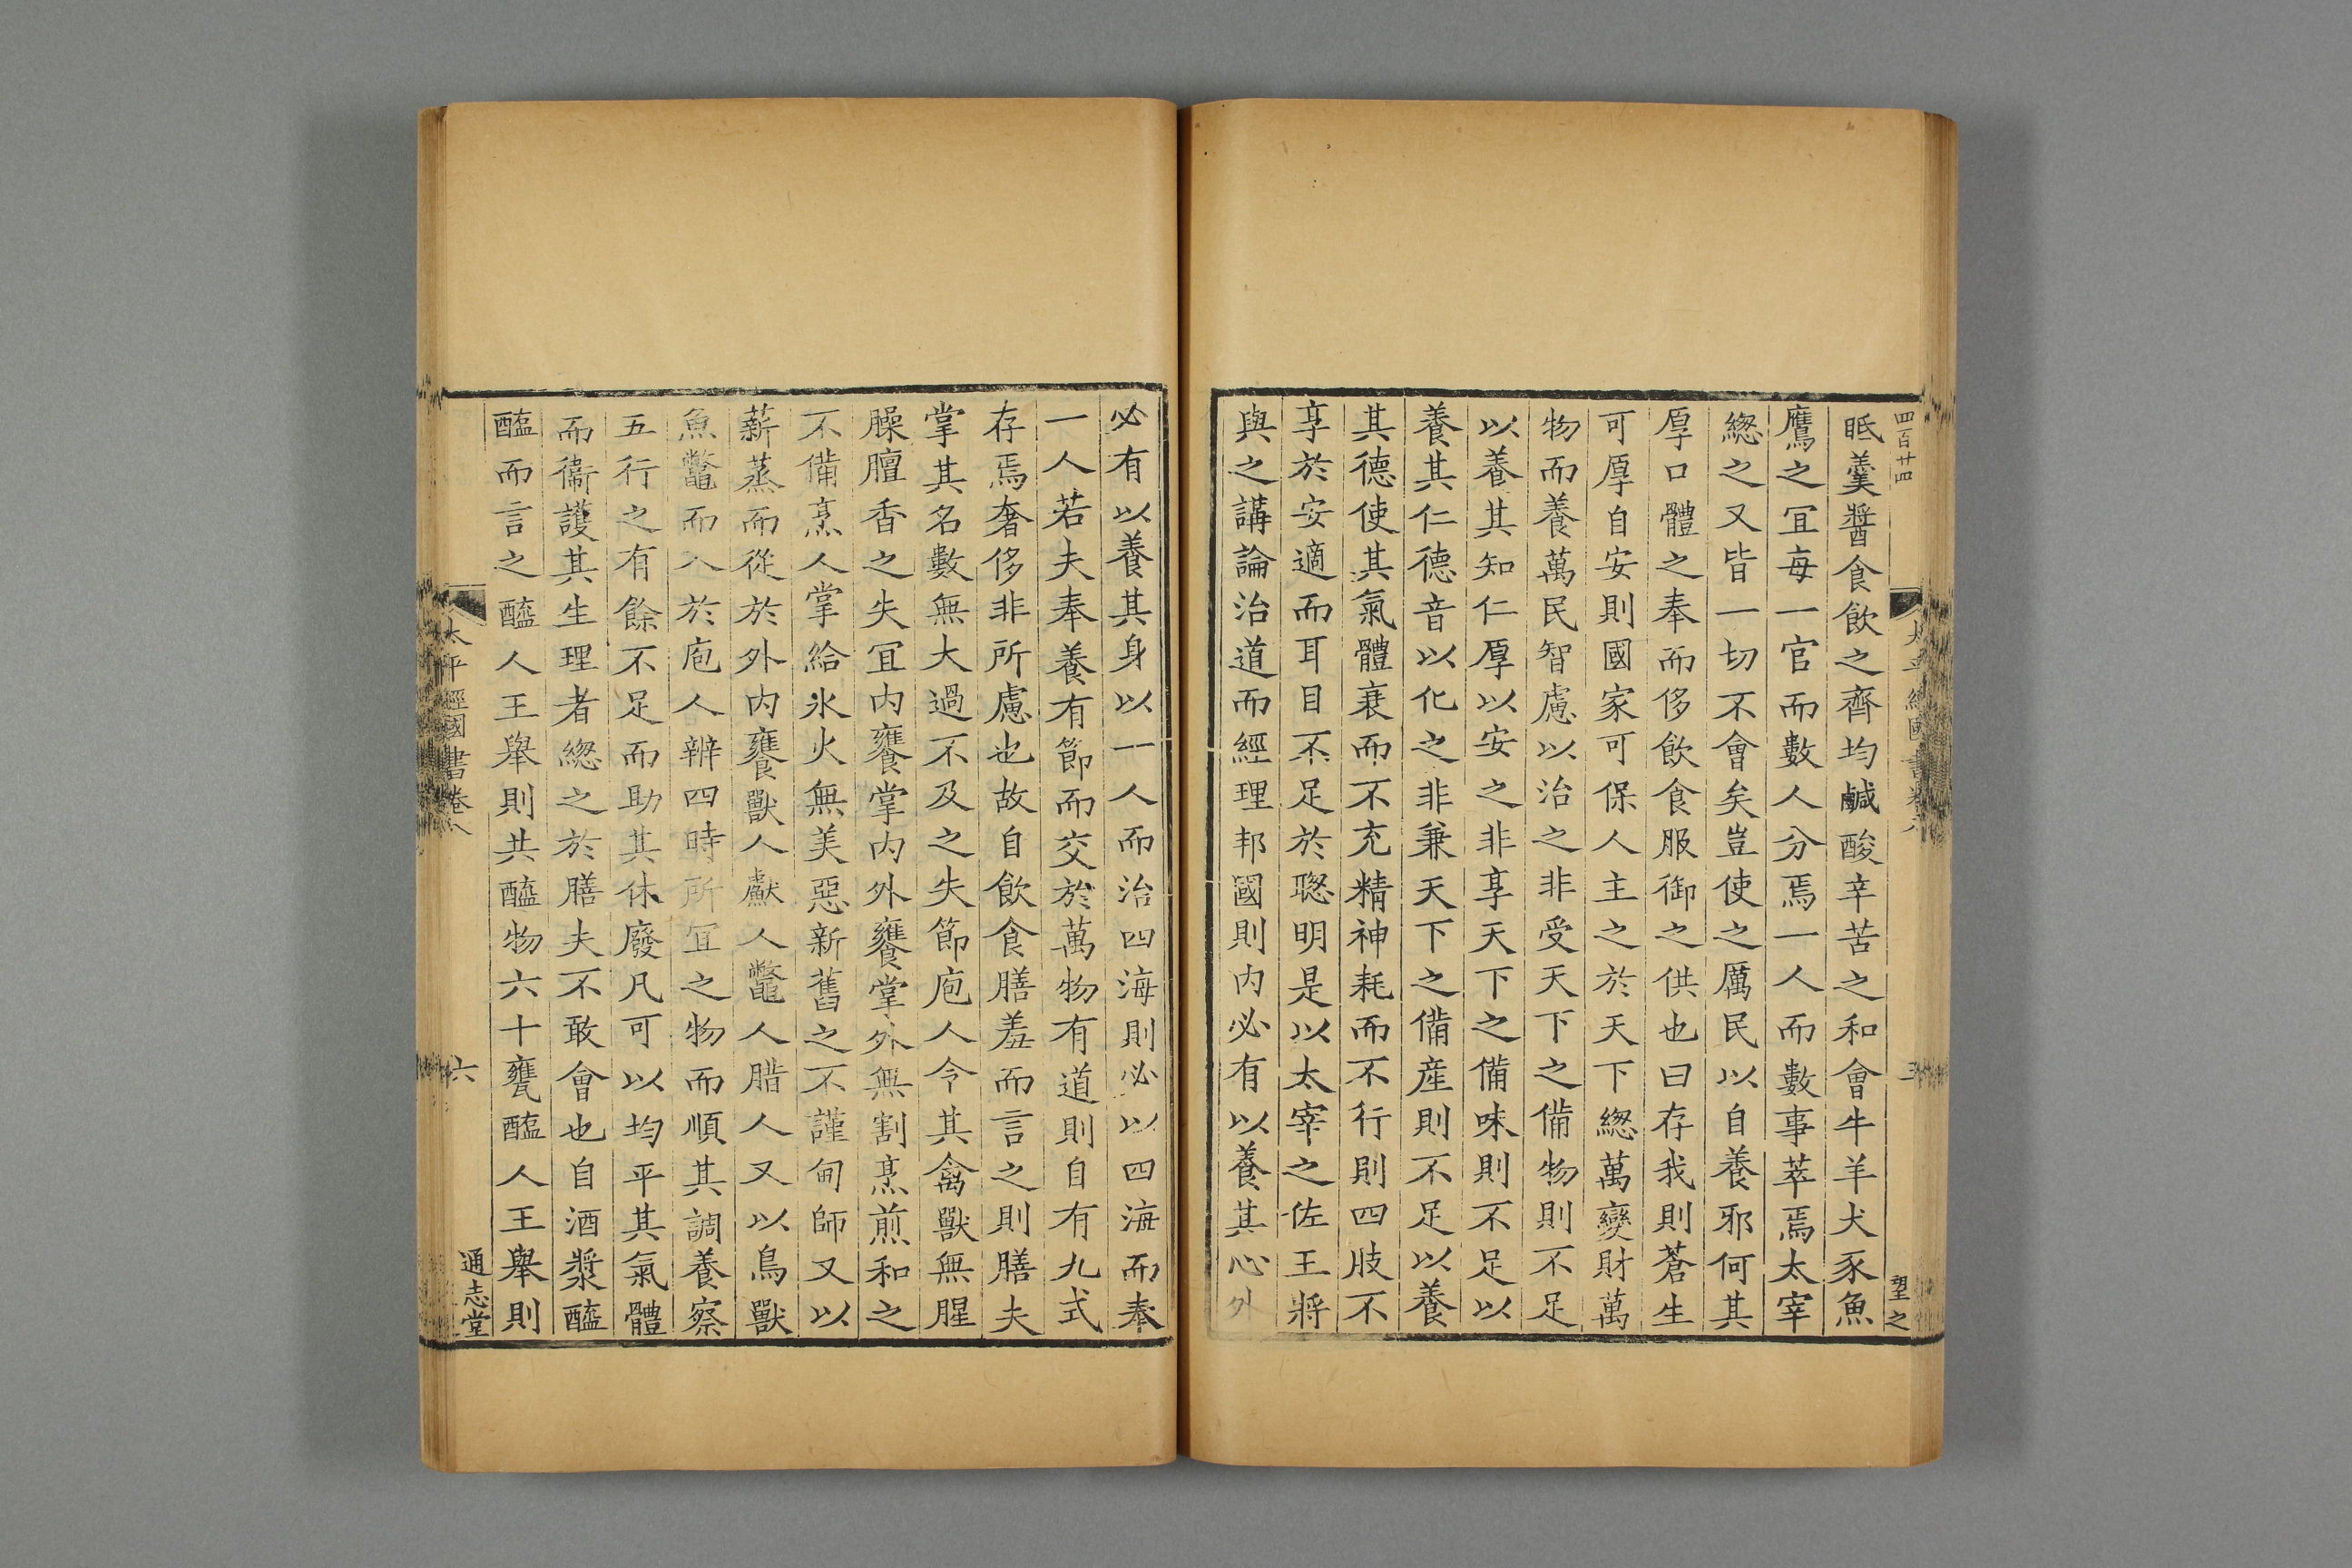 四百廿四
望之
眡羹醬食飲之齊均鹹酸辛苦之和會牛羊犬豕魚
鷹之宜每一官而數人分焉一人而數事萃焉太宰
緫之又皆一切不會矣豈使之厲民以自養邪何其
厚口體之奉而侈飲食服御之供也曰存我則蒼生
可厚自安則國家可保人主之於天下緫萬變財萬
物而養萬民智慮以治之非受天下之備物則不足
以養其知仁厚以安之非享天下之備味則不足以
養其仁德音以化之非兼天下之備產則不足以養
其德使其氣體衰而不充精神耗而不行則四肢不
享於安適而耳目不足於聦明是以太宰之佐王將
與之講論治道而經理邦國則内必有以養其心外
必有以養其身以一人而治四海則必以四海而奉
一人若夫奉養有節而交於萬物有道則自有九式
存焉奢侈非所慮也故自飲食膳羞而言之則膳夫
掌其名數無大過不及之失節庖人令其禽獸無腥
臊膻香之失宜内饔掌内外饔掌外無割烹煎和之
不備烹人掌給水火無美惡新舊之不謹甸師又以
薪蒸而從於外内饔獸人䱷人鼈人腊人又以鳥獸
魚鼈而入於庖人辨四時所宜之物而順其調養察
五行之有餘不足而助其休廢凡可以均平其氣體
而衞護其生理者緫之於膳夫不敢會也自酒漿醢
醢而言之醢人王舉則共醢物六十甕醢人王舉則
太平經國書卷八
六
通志堂